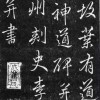 故葉有道
神道碑并
州刺史李
并書